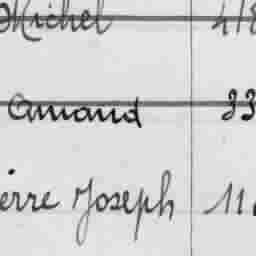 Michel 418
Amand 33
erre Joseph 11